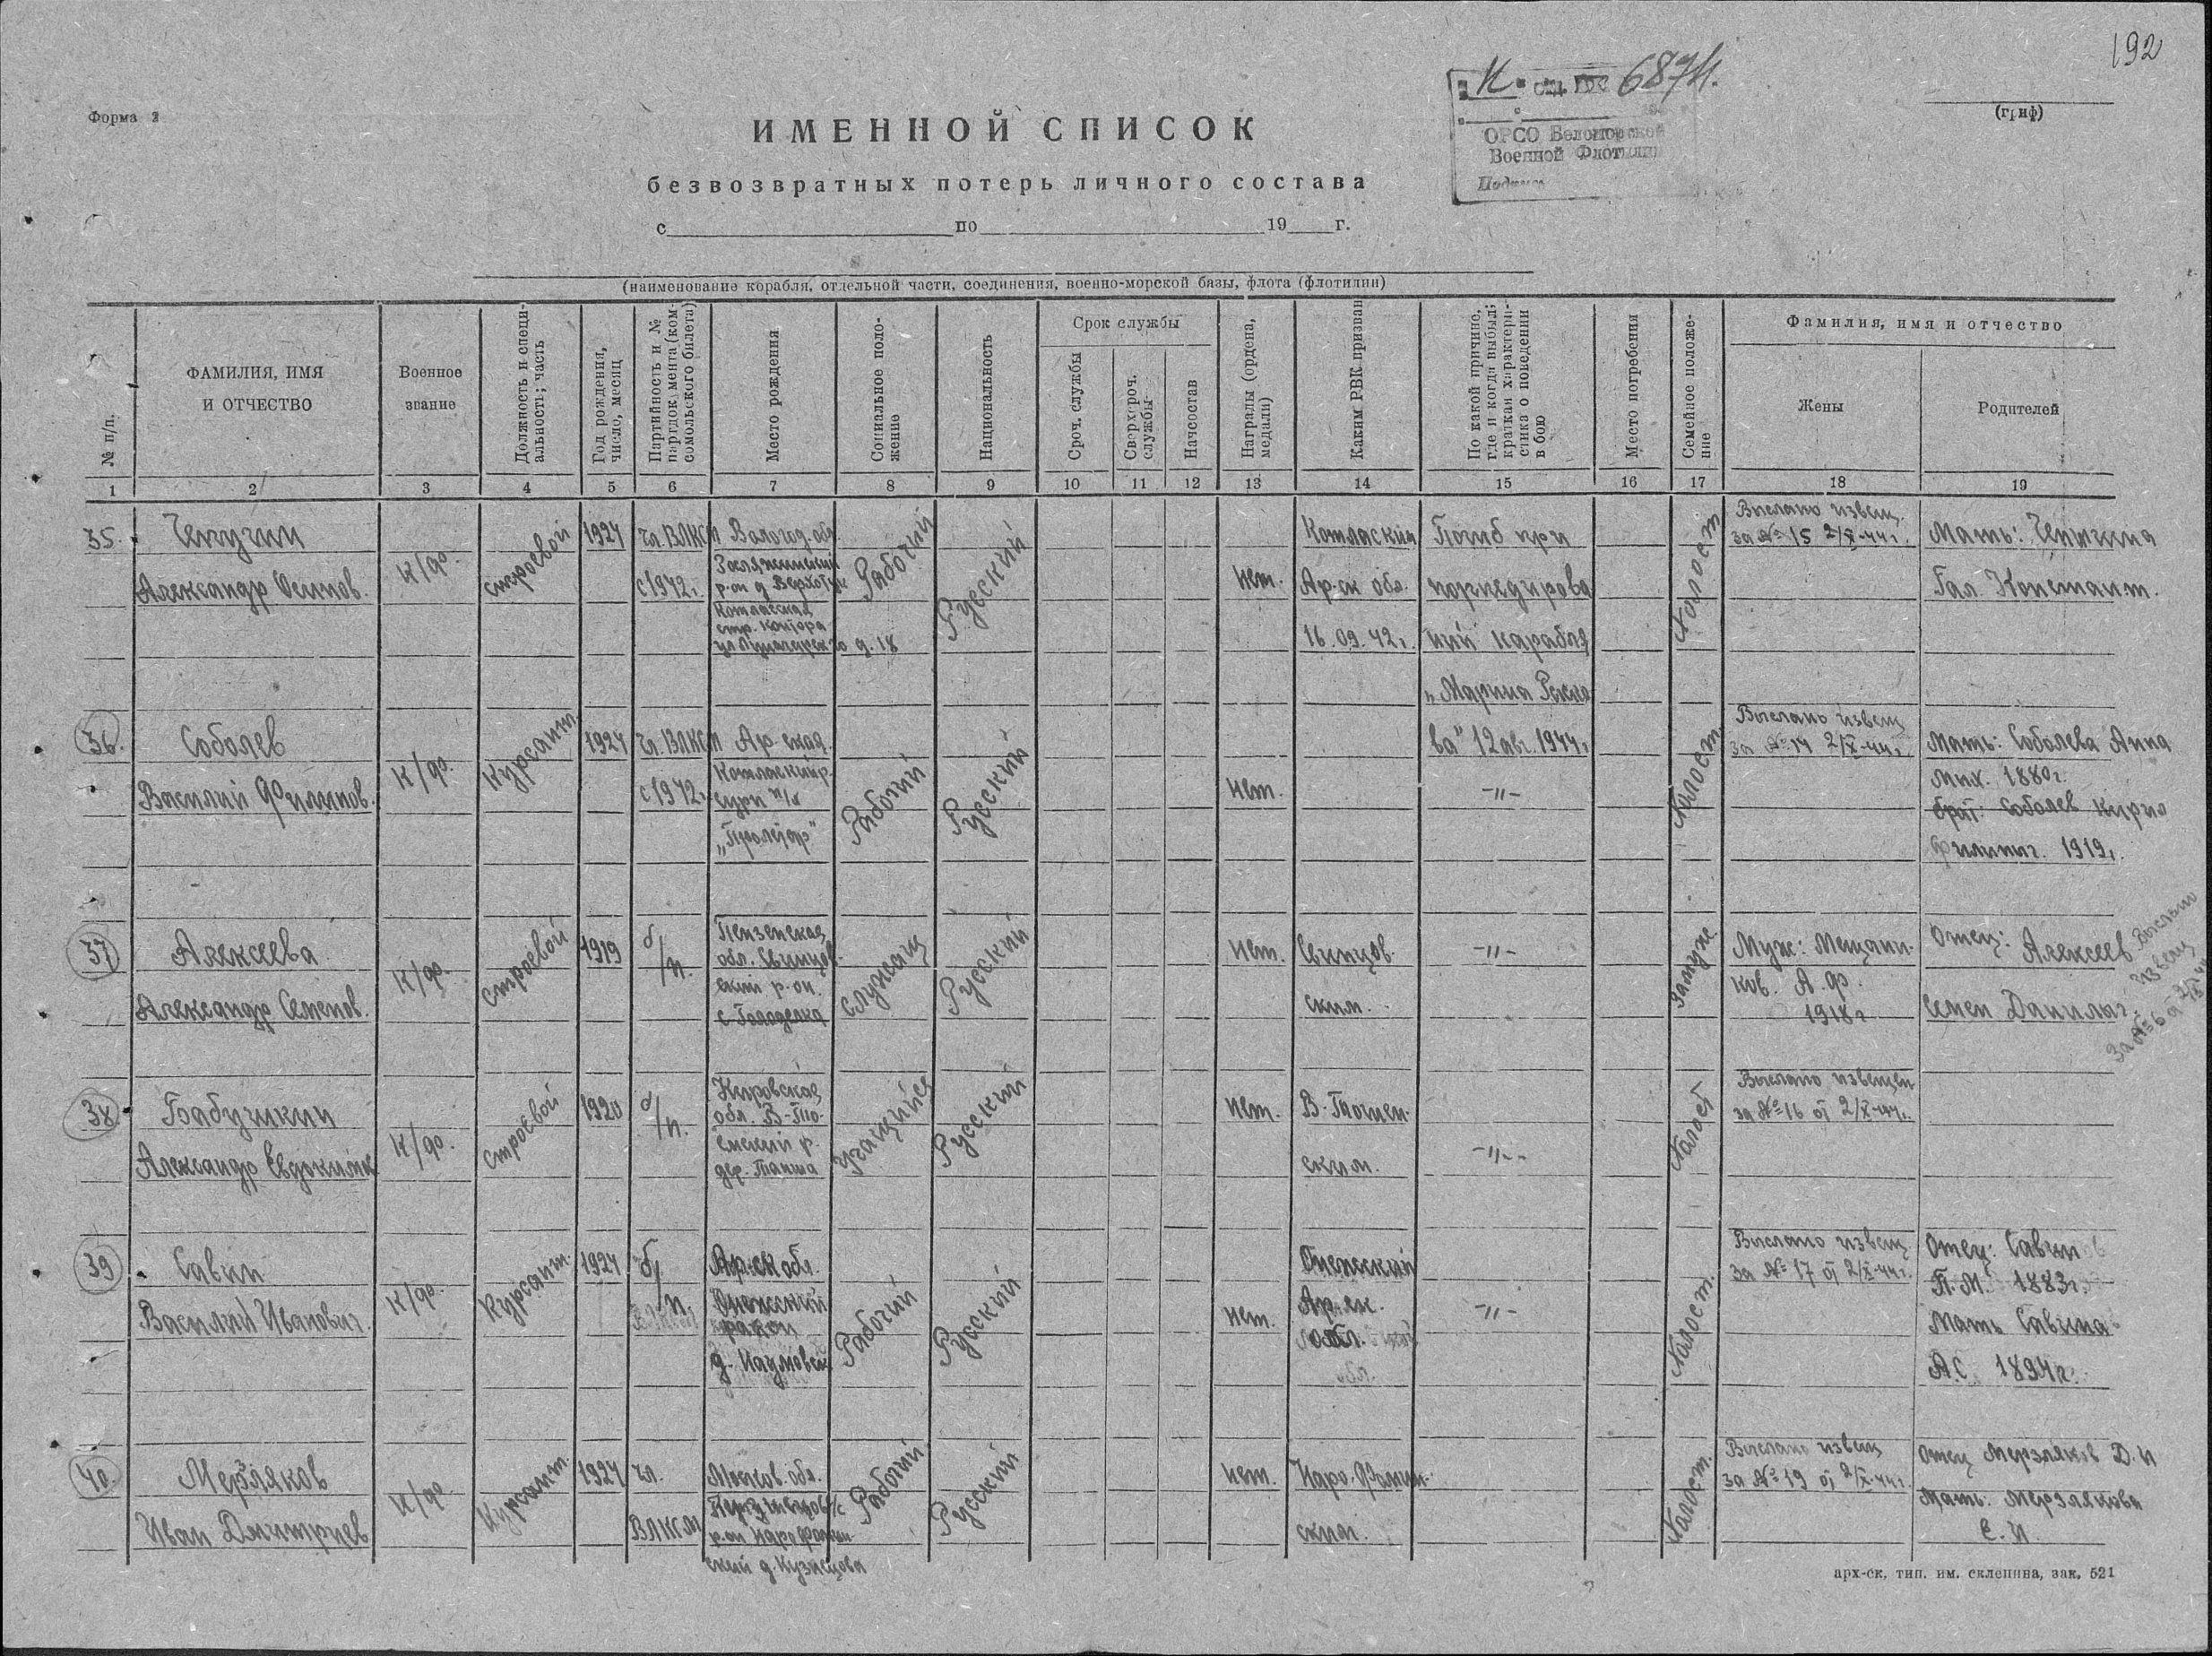 192
К. 6874.
ОРСО Беломорской
Военной Флотилии
(гриф)
Форма 2
ИМЕННОЙ СПИСОК
безвозвратных потерь личного состава
с по 19 г.
(наименование корабля, отдельной части, соединения, военно-морской базы, флота (флотилии)
№ п/п.
ФАМИЛИЯ, ИМЯ
И ОТЧЕСТВО
Военное
звание
Должность и специ-
альность; часть
Год рождения,
число, месяц
Партийность и №
партдокумента (ком-
сомольского билета)
Место рождения
Социальное поло-
жение
Национальность
Срок службы
Сроч. службы
Сверхсроч.
службы
Начсостав
Награды (ордена,
медали)
Каким РВК призван
По какой причине,
где и когда выбыл;
краткая характери-
стика о поведении
в бою
Место погребения
Семейное положе-
ние
Фамилия, имя и отчество
Жены
Родителей
1 2 3 4 5 6 7 8 9 10 11 12 13 14 15 16 17 18 19
35.
Александр Осипов.
к/ф.
строевой
1924
чл. ВЛКСМ
с 1942 г.
Вологод. обл.
р-он д.
Котласская
стр. контора
д. 18
Рабочий
Русский
Нет.
Котласким
Ар-ск обл.
16.09.42 г.
Погиб при
торпедирова
нии карабля
„Марина Раско
ва" 12 авг. 1944 г.
Холост
Выслано извещ.
за № 15 2/X-44 г.
Мать:
Гал. Констант.
36.
Соболев
Василий Филипов.
к/ф.
Курсант
1924
чл. ВЛКСМ
с 1942 г.
Ар-ская
Котлаский р.
п/х
„Пролетар"
Рабочий
Русский
Нет.
-"-
Холост.
Выслано извещ
за № 14 2/X-44 г.
Мать: Соболева Анна
Мих. 1880 г.
брат: Соболев Кирил
Филипыч. 1919 г.
37
Алексеева
Александр Семенов.
к/ф.
строевой
1919
б/п.
Пензенская
обл. Свищев-
ский р-он.
служащ
Русский
Нет.
ским.
-"-
Замуж.
Муж:
ков. А.Ф.
1918 г
Отец: Алексеев
Семен Данилыч
выслано
извещ
за № 6
38.
Бабушкин
Александр Евдоким
к/ф.
строевой
1920
б/п.
Кировская
обл. В-То-
емский р.
дер.
учащийся
Русский
Нет.
ским.
-"-
Холост
Выслано извещен
за № 16 от 2/X-44 г.
39
Савин
Василий Иванович.
к/ф.
Курсант.
1924
б/п.
Ар-ск обл.
Онежский
район
Рабочий
Русский
Нет.
Онежский
Ар-ск.
обл.
-"-
Холост.
Выслано извещ
за № 17 от 2/X-44 г.
Отец: Савин
П.М. 1883 г.
Мать Савина
А.С. 1894 г.
40.
Мерзляков
Иван Дмитриев
к/ф.
Курсант.
1924
чл.
ВЛКСМ
Москов. обл.
р-он Нарофомин-
ский д. Кузнецова
Рабочий
Русский
Нет.
Наро-Фомин-
ским.
Холост.
Выслано извещ
за № 19 от 2/X-44 г.
Отец Мерзляков Д.И
Мать: Мерзлякова
Е.И.
арх-ск. тип. им. склепина, зак. 521